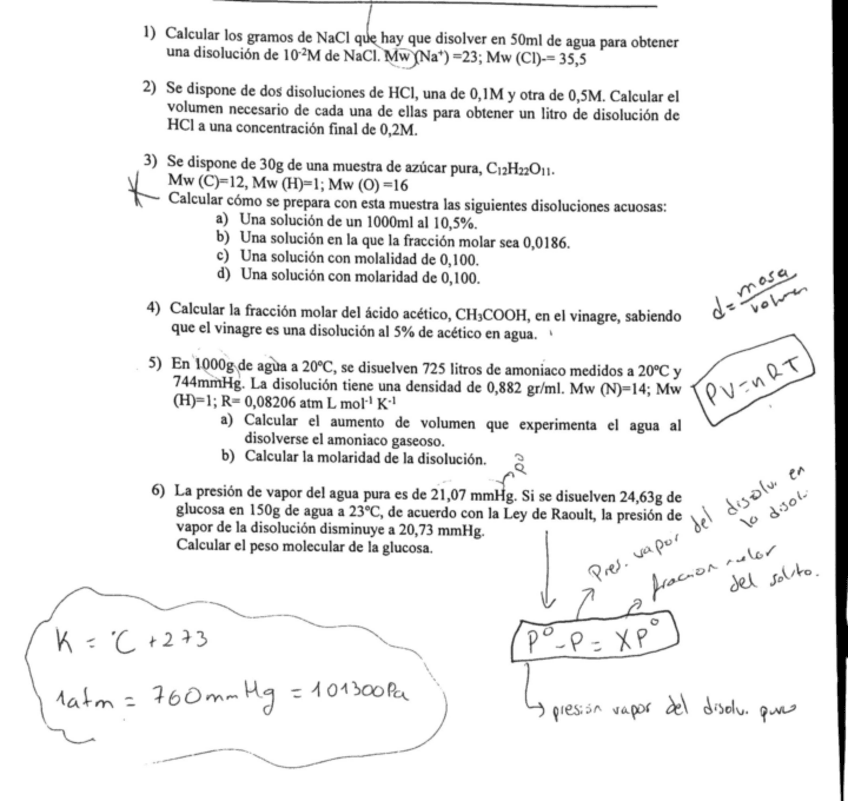 1) Calcular los gramos de NaCl que hay que disolver en 50ml de agua para obtener
una disolución de 10⁻²M de NaCl. Mw (Na⁺) =23; Mw (Cl)-= 35,5
2) Se dispone de dos disoluciones de HCl, una de 0,1M y otra de 0,5M. Calcular el
volumen necesario de cada una de ellas para obtener un litro de disolución de
HCl a una concentración final de 0,2M.
3) Se dispone de 30g de una muestra de azúcar pura, C₁₂H₂₂O₁₁.
Mw (C)=12, Mw (H)=1; Mw (O) =16
Calcular cómo se prepara con esta muestra las siguientes disoluciones acuosas:
a) Una solución de un 1000ml al 10,5%.
b) Una solución en la que la fracción molar sea 0,0186.
c) Una solución con molalidad de 0,100.
d) Una solución con molaridad de 0,100.
d = masa
volumen
4) Calcular la fracción molar del ácido acético, CH₃COOH, en el vinagre, sabiendo
que el vinagre es una disolución al 5% de acético en agua.
5) En 1000g de agua a 20ºC, se disuelven 725 litros de amoniaco medidos a 20ºC y
744mmHg. La disolución tiene una densidad de 0,882 gr/ml. Mw (N)=14; Mw
(H)=1; R= 0,08206 atm L mol⁻¹ K⁻¹
PV=nRT
a) Calcular el aumento de volumen que experimenta el agua al
disolverse el amoniaco gaseoso.
b) Calcular la molaridad de la disolución.
6) La presión de vapor del agua pura es de 21,07 mmHg. Si se disuelven 24,63g de
glucosa en 150g de agua a 23ºC, de acuerdo con la Ley de Raoult, la presión de
vapor de la disolución disminuye a 20,73 mmHg.
Calcular el peso molecular de la glucosa.
Pres. vapor del disolu. en
la disol.
fraccion molar
del soluto.
K = ºC + 273
1atm = 760mmHg = 101300Pa
Pº-P = XPº
presión vapor del disolu. puro